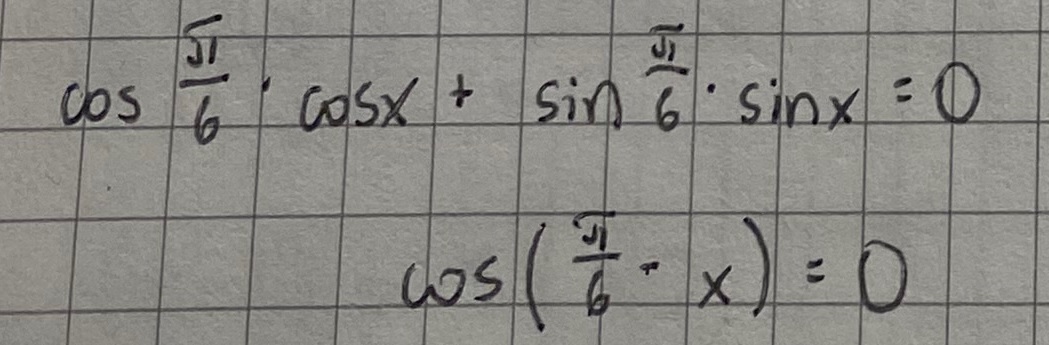 cos π/6 · cosx + sin π/6 · sinx = 0
cos(π/6 - x) = 0